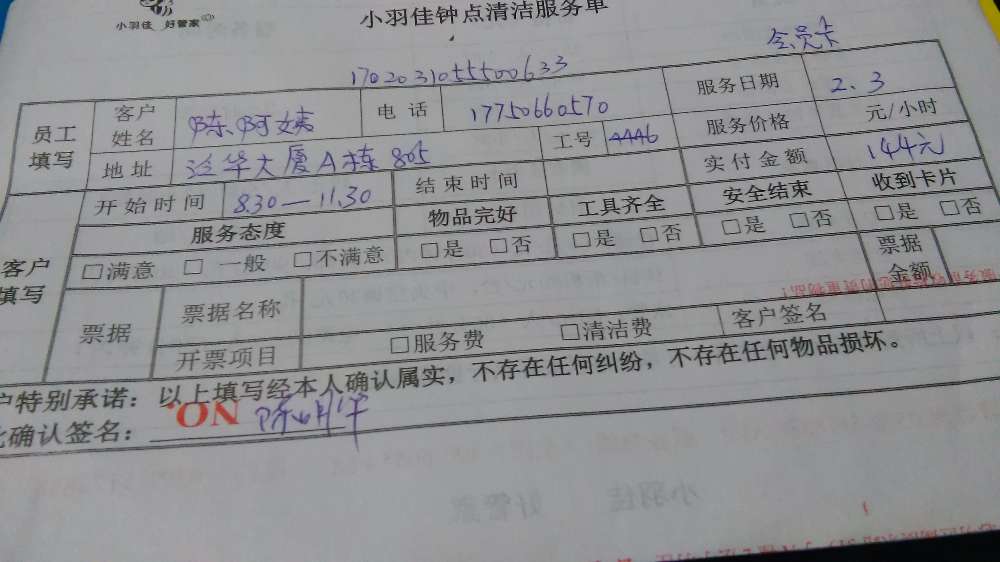 小羽佳 好管家
小羽佳钟点清洁服务单
会员卡
17020310555500633
员工填写 客户姓名 陈阿姨 电话 17750660570 服务日期 2.3
地址 泛华大厦A栋805 工号 4446 服务价格 元/小时
实付金额 144元
客户填写 开始时间 8.30—11.30 结束时间
服务态度 物品完好 工具齐全 安全结束 收到卡片
□满意 □一般 □不满意 □是 □否 □是 □否 □是 □否 □是 □否
票据 票据名称 票据金额
开票项目 □服务费 □清洁费 客户签名
户特别承诺：以上填写经本人确认属实，不存在任何纠纷，不存在任何物品损坏。
此确认签名：
NO
小羽佳 好管家